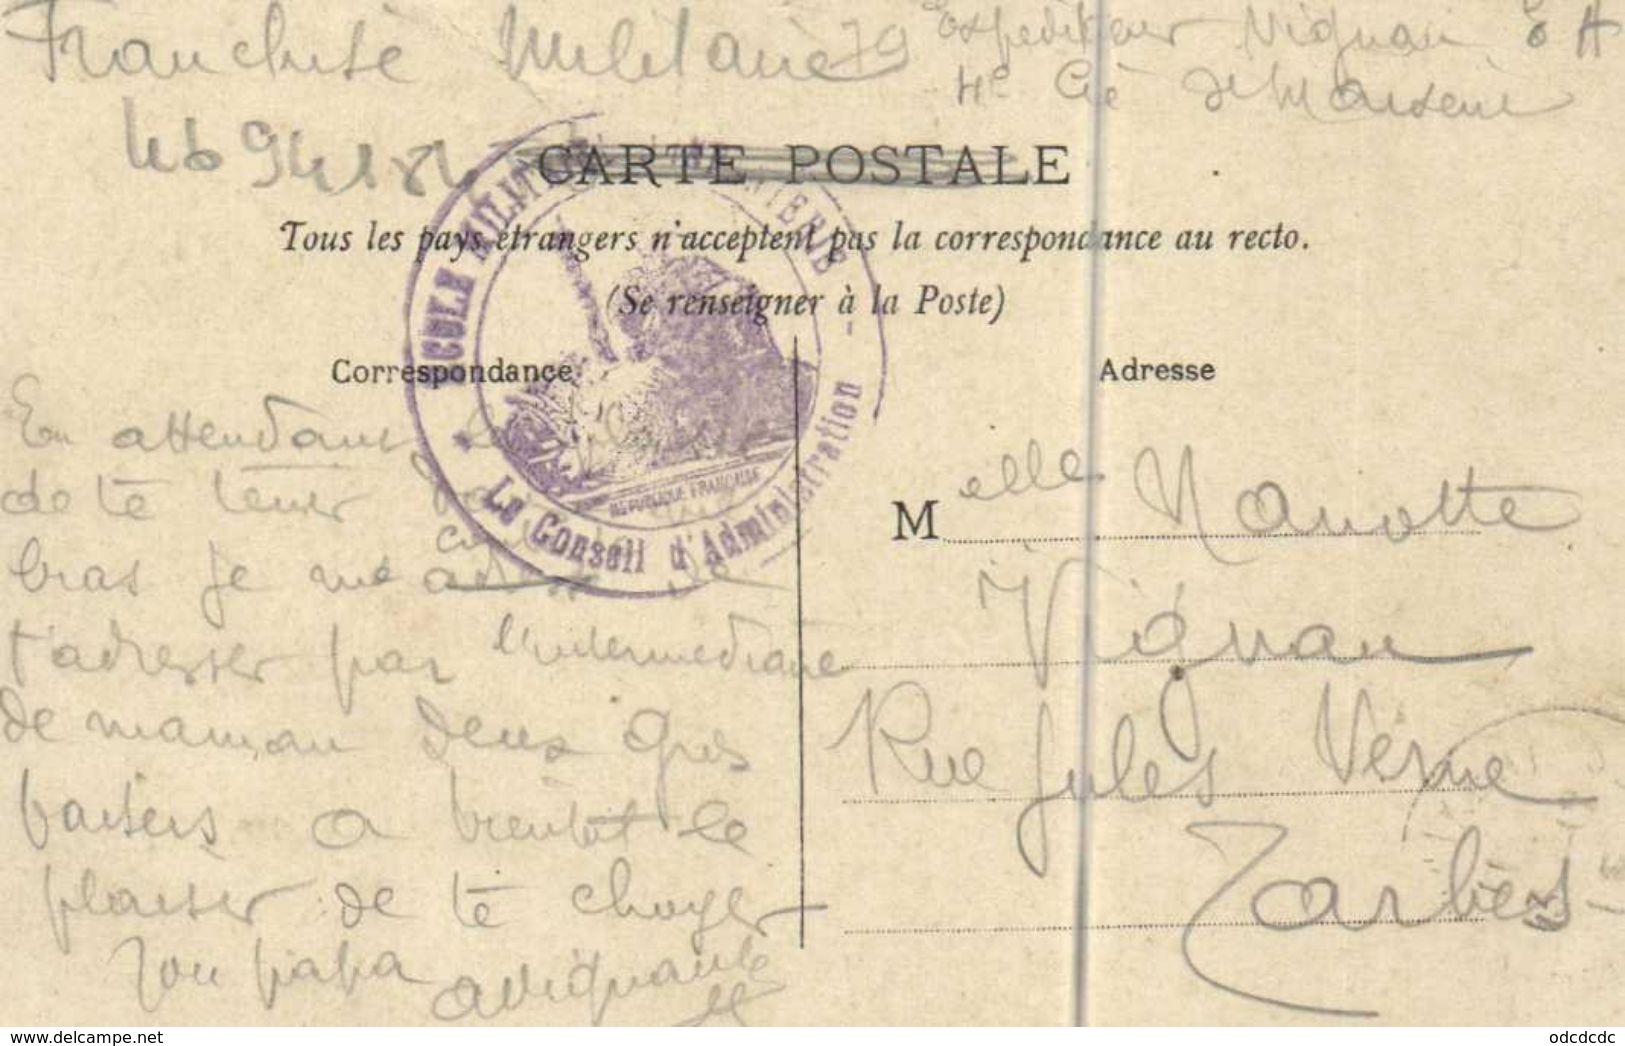 Franchise Militaire
Expediteur Vignau
4e Cie
CARTE POSTALE
Tous les pays étrangers n'acceptent pas la correspondance au recto.
(Se renseigner à la Poste)
ÉCOLE MILITAIRE
Le Conseil d'Administration
RÉPUBLIQUE FRANÇAISE
Correspondance
Adresse
En attendant
de te tenir
bras je
t'adresser par l'intermédiaire
de maman deux gros
baisers a bientot le
plaisir de te choyer
Ton papa
Melle Nanotte
Vignau
Rue Jules Verne
Tarbes
www.delcampe.net
odcdcdc